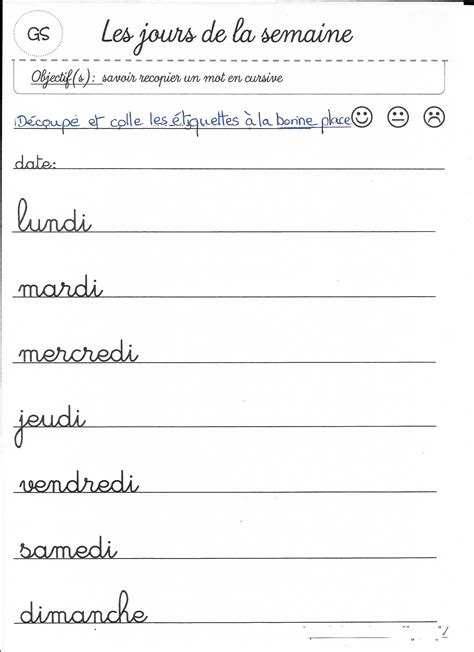 GS
Les jours de la semaine
Objectif(s): savoir recopier un mot en cursive
Découpe et colle les étiquettes à la bonne place
date:
lundi
mardi
mercredi
jeudi
vendredi
samedi
dimanche